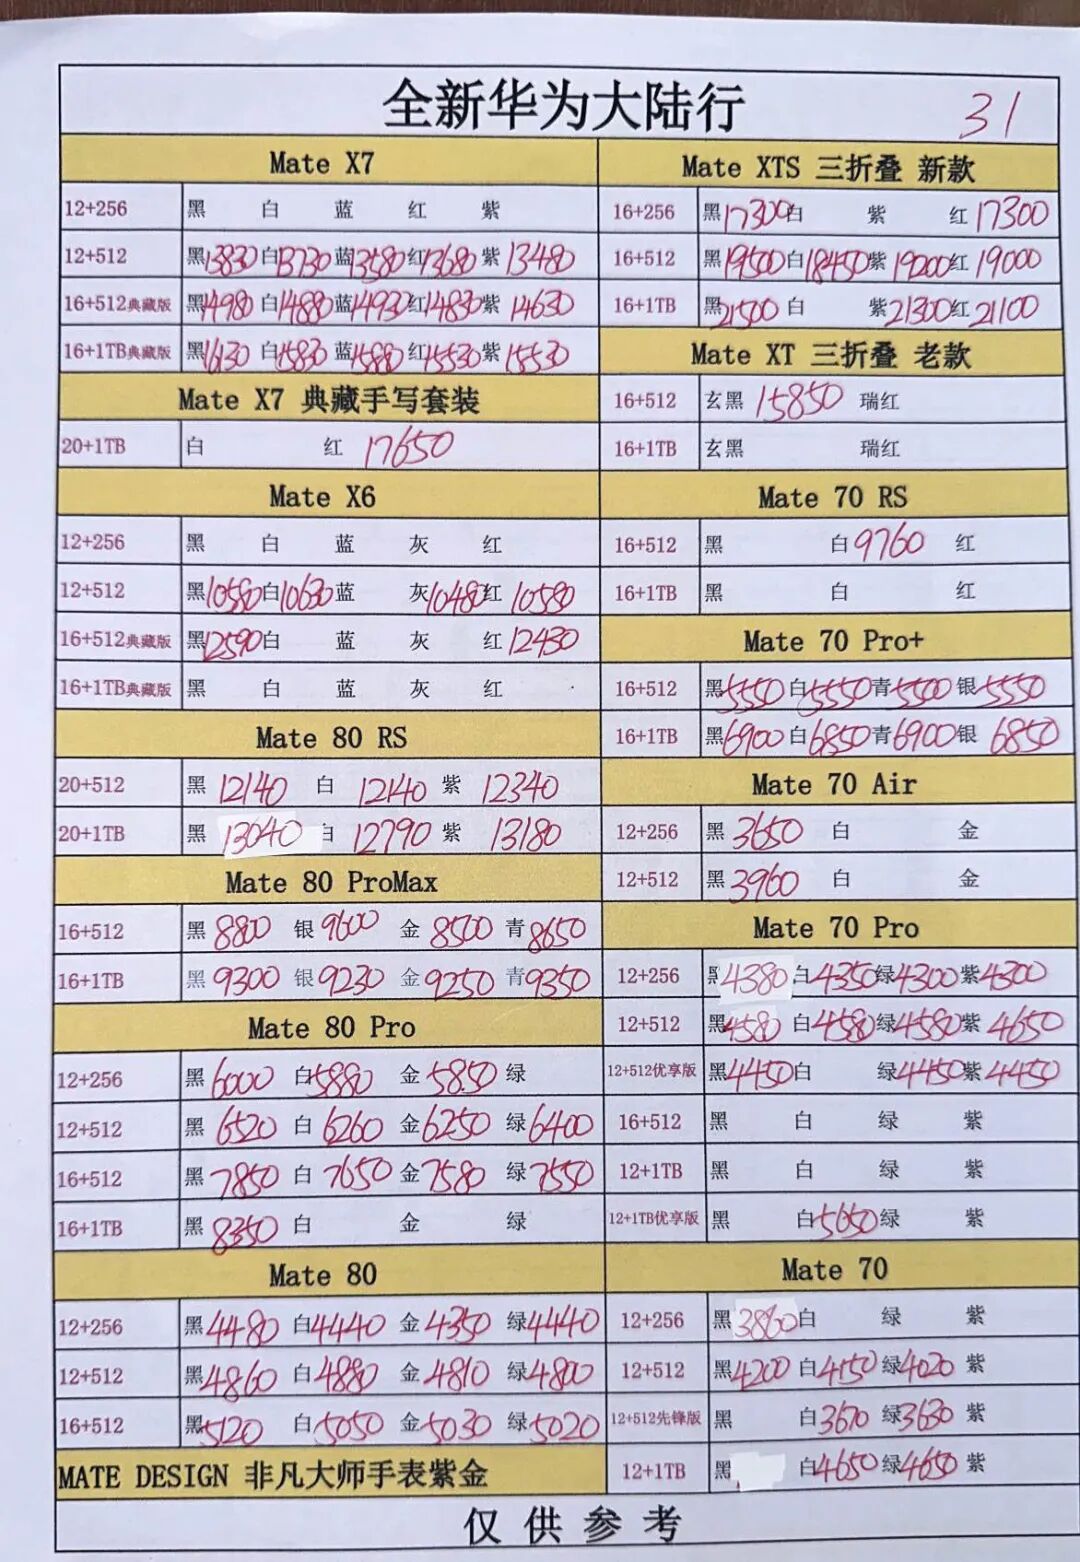 全新华为大陆行 31
Mate X7
12+256 黑 白 蓝 红 紫
12+512 黑13830 白13730 蓝13580 红13680 紫 13480
16+512典藏版 黑14980 白14880 蓝14930 红14830 紫 14630
16+1TB典藏版 黑16130 白15830 蓝15880 红15530 紫 15530
Mate X7 典藏手写套装
20+1TB 白 红 17650
Mate X6
12+256 黑 白 蓝 灰 红
12+512 黑10580 白10630 蓝 灰10480 红 10580
16+512典藏版 黑12590 白 蓝 灰 红 12430
16+1TB典藏版 黑 白 蓝 灰 红
Mate 80 RS
20+512 黑 12140 白 12140 紫 12340
20+1TB 黑 13040 白 12790 紫 13180
Mate 80 ProMax
16+512 黑 8800 银 9600 金 8500 青 8650
16+1TB 黑 9300 银 9230 金 9250 青 9350
Mate 80 Pro
12+256 黑 6000 白5880 金 5850 绿
12+512 黑 6520 白 6260 金 6250 绿 6400
16+512 黑 7850 白 7650 金 7580 绿 7550
16+1TB 黑 8350 白 金 绿
Mate 80
12+256 黑 4480 白4440 金 4350 绿4440
12+512 黑 4860 白 4880 金 4810 绿 4800
16+512 黑 5120 白 5050 金 5030 绿 5020
MATE DESIGN 非凡大师手表紫金
Mate XTS 三折叠 新款
16+256 黑17300 白 紫 红 17300
16+512 黑19500 白18450 紫 19200 红 19000
16+1TB 黑21500 白 紫21300 红 21100
Mate XT 三折叠 老款
16+512 玄黑 15850 瑞红
16+1TB 玄黑 瑞红
Mate 70 RS
16+512 黑 白 9760 红
16+1TB 黑 白 红
Mate 70 Pro+
16+512 黑5550 白5550 青5500 银5550
16+1TB 黑6900 白6850 青6900 银 6850
Mate 70 Air
12+256 黑 3650 白 金
12+512 黑 3960 白 金
Mate 70 Pro
12+256 黑4380 白4350 绿4300 紫4300
12+512 黑4580 白4580 绿4580 紫 4650
12+512优享版 黑4450 白 绿4450 紫 4450
16+512 黑 白 绿 紫
12+1TB 黑 白 绿 紫
12+1TB优享版 黑 白5650 绿 紫
Mate 70
12+256 黑3860 白 绿 紫
12+512 黑4200 白4150 绿4020 紫
12+512先锋版 黑 白3670 绿3630 紫
12+1TB 黑 白4650 绿4650 紫
仅供参考